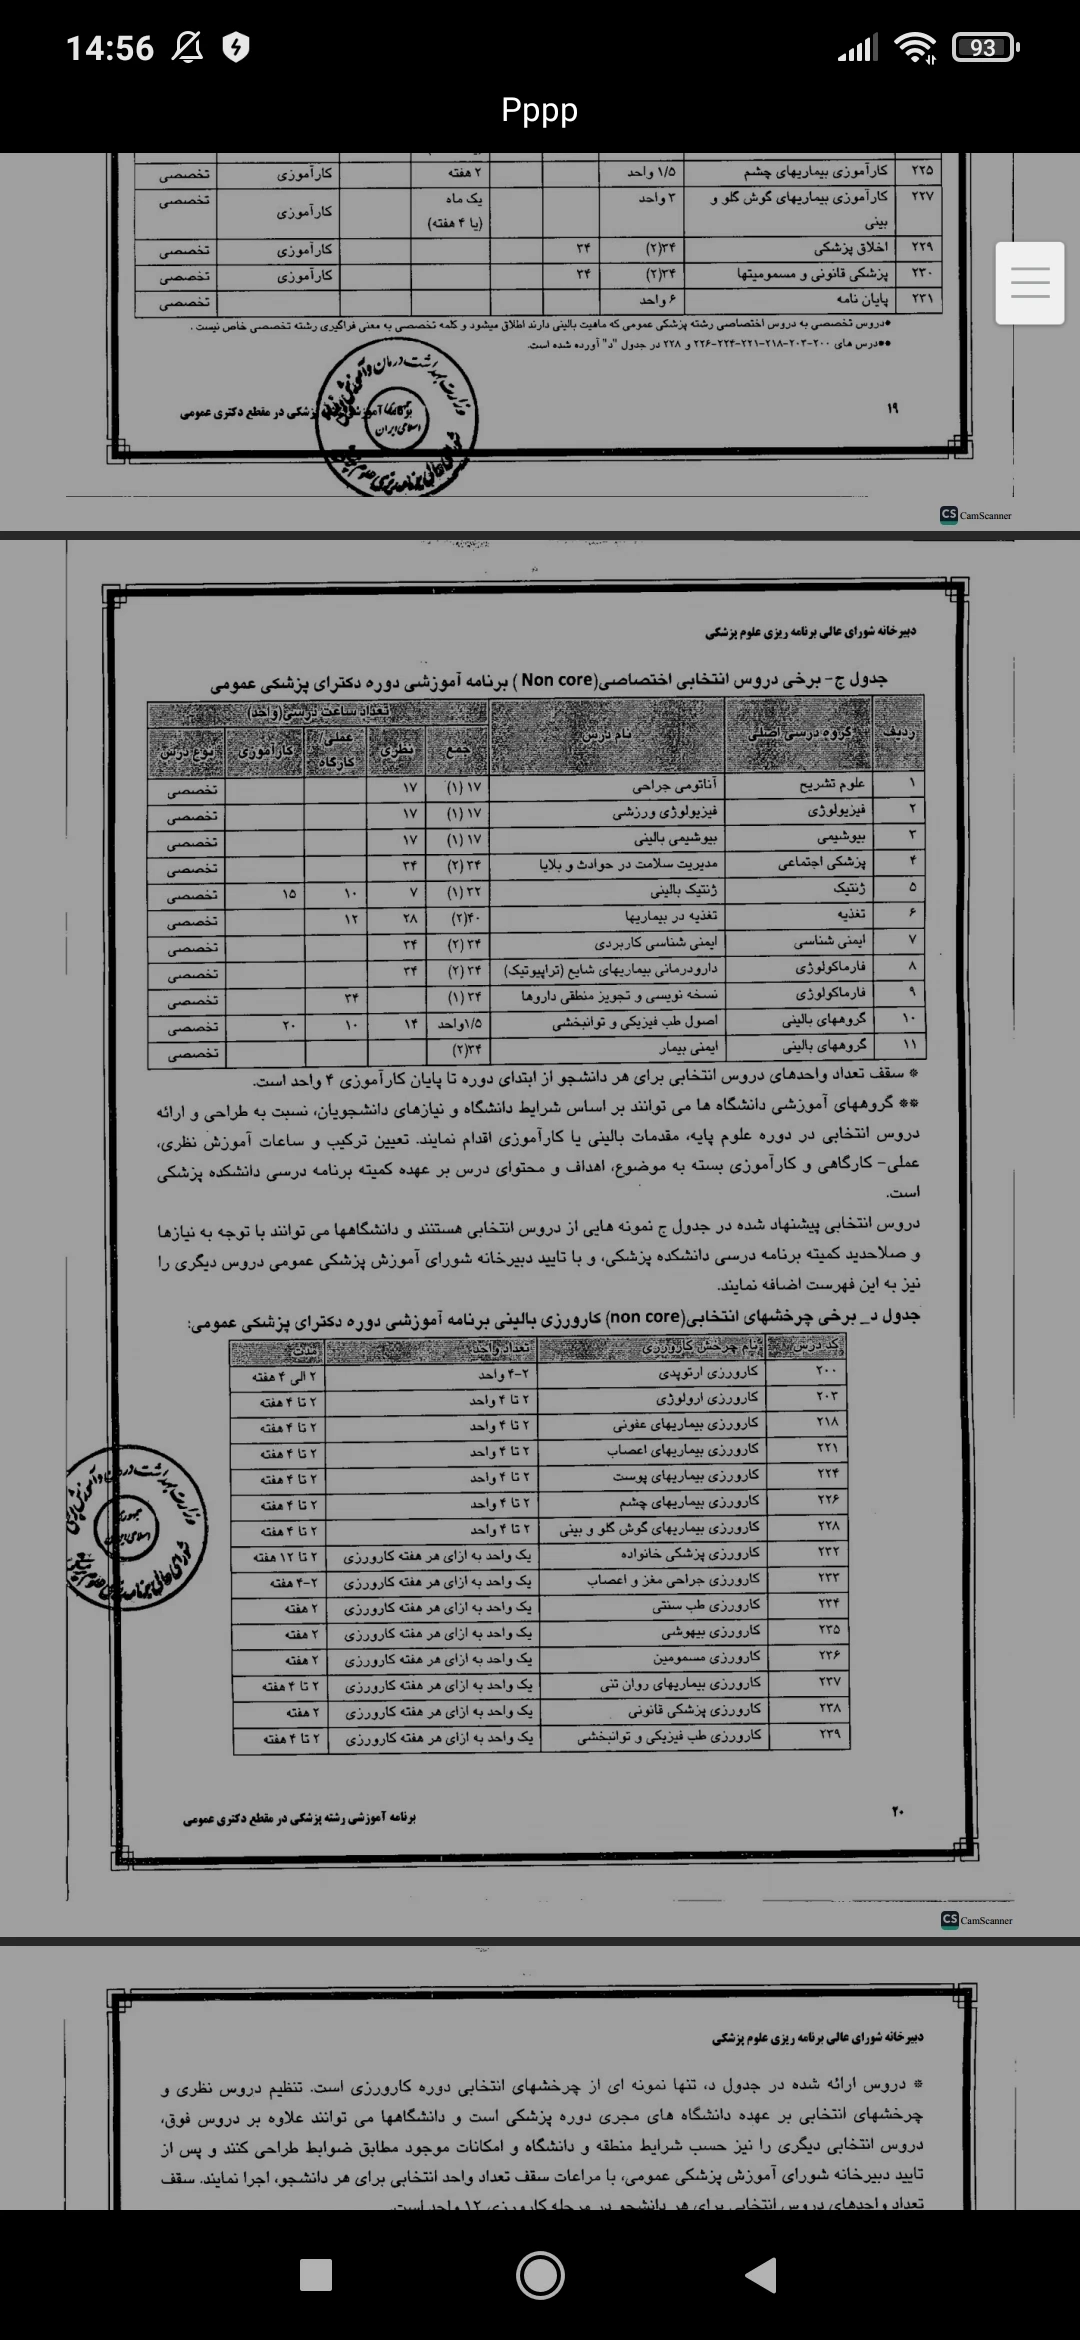 14:56
93
Pppp
۲۲۵ کارآموزی بیماریهای چشم ۱/۵ واحد ۲ هفته کارآموزی تخصصی
۲۲۷ کارآموزی بیماریهای گوش گلو و بینی ۳ واحد یک ماه (یا ۴ هفته) کارآموزی تخصصی
۲۲۹ اخلاق پزشکی ۳۴(۲) ۳۴ کارآموزی تخصصی
۲۳۰ پزشکی قانونی و مسمومیتها ۳۴(۲) ۳۴ کارآموزی تخصصی
۲۳۱ پایان نامه ۶ واحد تخصصی
*دروس تخصصی به دروس اختصاصی رشته پزشکی عمومی که ماهیت بالینی دارند اطلاق میشود و کلمه تخصصی به معنی فراگیری رشته تخصصی خاص نیست .
**درس های ۲۰۰-۲۰۳-۲۱۸-۲۲۱-۲۲۴-۲۲۶ و ۲۲۸ در جدول "د" آورده شده است.
۱۹ برنامه آموزشی رشته پزشکی در مقطع دکتری عمومی
CS CamScanner
دبیرخانه شورای عالی برنامه ریزی علوم پزشکی
جدول ج- برخی دروس انتخابی اختصاصی(Non core ) برنامه آموزشی دوره دکترای پزشکی عمومی
ردیف گروه درسی اصلی نام درس تعداد ساعت درسی(واحد)
جمع نظری عملی/کارگاه کارآموزی نوع درس
۱ علوم تشریح آناتومی جراحی ۱۷ (۱) ۱۷ تخصصی
۲ فیزیولوژی فیزیولوژی ورزشی ۱۷ (۱) ۱۷ تخصصی
۳ بیوشیمی بیوشیمی بالینی ۱۷ (۱) ۱۷ تخصصی
۴ پزشکی اجتماعی مدیریت سلامت در حوادث و بلایا ۳۴ (۲) ۳۴ تخصصی
۵ ژنتیک ژنتیک بالینی ۳۲ (۱) ۷ ۱۰ ۱۵ تخصصی
۶ تغذیه تغذیه در بیماریها ۴۰(۲) ۲۸ ۱۲ تخصصی
۷ ایمنی شناسی ایمنی شناسی کاربردی ۳۴ (۲) ۳۴ تخصصی
۸ فارماکولوژی دارودرمانی بیماریهای شایع (تراپیوتیک) ۳۴ (۲) ۳۴ تخصصی
۹ فارماکولوژی نسخه نویسی و تجویز منطقی داروها ۳۴ (۱) ۳۴ تخصصی
۱۰ گروههای بالینی اصول طب فیزیکی و توانبخشی ۱/۵واحد ۱۴ ۱۰ ۲۰ تخصصی
۱۱ گروههای بالینی ایمنی بیمار ۳۴(۲) تخصصی
* سقف تعداد واحدهای دروس انتخابی برای هر دانشجو از ابتدای دوره تا پایان کارآموزی ۴ واحد است.
** گروههای آموزشی دانشگاه ها می توانند بر اساس شرایط دانشگاه و نیازهای دانشجویان، نسبت به طراحی و ارائه
دروس انتخابی در دوره علوم پایه، مقدمات بالینی یا کارآموزی اقدام نمایند. تعیین ترکیب و ساعات آموزش نظری،
عملی- کارگاهی و کارآموزی بسته به موضوع، اهداف و محتوای درس بر عهده کمیته برنامه درسی دانشکده پزشکی
است.
دروس انتخابی پیشنهاد شده در جدول ج نمونه هایی از دروس انتخابی هستند و دانشگاهها می توانند با توجه به نیازها
و صلاحدید کمیته برنامه درسی دانشکده پزشکی، و با تایید دبیرخانه شورای آموزش پزشکی عمومی دروس دیگری را
نیز به این فهرست اضافه نمایند.
جدول د_ برخی چرخشهای انتخابی(non core) کارورزی بالینی برنامه آموزشی دوره دکترای پزشکی عمومی:
کد درس نام چرخش کارورزی تعداد واحد مدت
۲۰۰ کارورزی ارتوپدی ۲-۴ واحد ۲ الی ۴ هفته
۲۰۳ کارورزی ارولوژی ۲ تا ۴ واحد ۲ تا ۴ هفته
۲۱۸ کارورزی بیماریهای عفونی ۲ تا ۴ واحد ۲ تا ۴ هفته
۲۲۱ کارورزی بیماریهای اعصاب ۲ تا ۴ واحد ۲ تا ۴ هفته
۲۲۴ کارورزی بیماریهای پوست ۲ تا ۴ واحد ۲ تا ۴ هفته
۲۲۶ کارورزی بیماریهای چشم ۲ تا ۴ واحد ۲ تا ۴ هفته
۲۲۸ کارورزی بیماریهای گوش گلو و بینی ۲ تا ۴ واحد ۲ تا ۴ هفته
۲۳۲ کارورزی پزشکی خانواده یک واحد به ازای هر هفته کارورزی ۲ تا ۱۲ هفته
۲۳۳ کارورزی جراحی مغز و اعصاب یک واحد به ازای هر هفته کارورزی ۲-۴ هفته
۲۳۴ کارورزی طب سنتی یک واحد به ازای هر هفته کارورزی ۲ هفته
۲۳۵ کارورزی بیهوشی یک واحد به ازای هر هفته کارورزی ۲ هفته
۲۳۶ کارورزی مسمومین یک واحد به ازای هر هفته کارورزی ۲ هفته
۲۳۷ کارورزی بیماریهای روان تنی یک واحد به ازای هر هفته کارورزی ۲ تا ۴ هفته
۲۳۸ کارورزی پزشکی قانونی یک واحد به ازای هر هفته کارورزی ۲ هفته
۲۳۹ کارورزی طب فیزیکی و توانبخشی یک واحد به ازای هر هفته کارورزی ۲ تا ۴ هفته
وزارت بهداشت درمان و آموزش پزشکی
جمهوری اسلامی ایران
شورای عالی برنامه ریزی علوم پزشکی
۲۰ برنامه آموزشی رشته پزشکی در مقطع دکتری عمومی
CS CamScanner
دبیرخانه شورای عالی برنامه ریزی علوم پزشکی
* دروس ارائه شده در جدول د، تنها نمونه ای از چرخشهای انتخابی دوره کارورزی است. تنظیم دروس نظری و
چرخشهای انتخابی بر عهده دانشگاه های مجری دوره پزشکی است و دانشگاهها می توانند علاوه بر دروس فوق،
دروس انتخابی دیگری را نیز حسب شرایط منطقه و دانشگاه و امکانات موجود مطابق ضوابط طراحی کنند و پس از
تایید دبیرخانه شورای آموزش پزشکی عمومی، با مراعات سقف تعداد واحد انتخابی برای هر دانشجو، اجرا نمایند. سقف
تعداد واحدهای دروس انتخابی برای هر دانشجو در مرحله کارورزی ۱۲ واحد است.